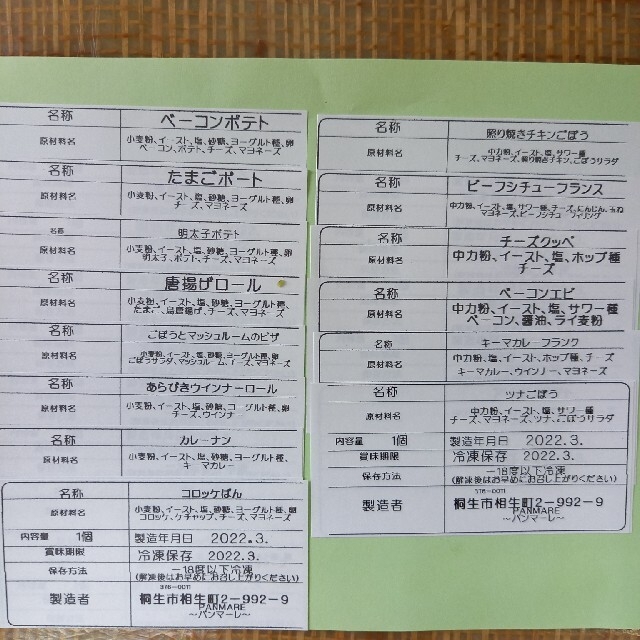 名称 ベーコンポテト
原材料名 小麦粉、イースト、塩、砂糖、ヨーグルト種、卵
ベーコン、ポテト、チーズ、マヨネーズ
名称 たまごボート
原材料名 小麦粉、イースト、塩、砂糖、ヨーグルト種、卵
チーズ、マヨネーズ
名称 明太子ポテト
原材料名 小麦粉、イースト、塩、砂糖、ヨーグルト種、卵
明太子、ポテト、チーズ、マヨネーズ
名称 唐揚げロール
原材料名 小麦粉、イースト、塩、砂糖、ヨーグルト種、
たまご、鳥唐揚げ、チーズ、マヨネーズ
名称 ごぼうとマッシュルームのピザ
原材料名 小麦粉、イースト、塩、砂糖、ヨーグルト種、卵
ごぼうサラダ、マッシュルーム、チーズ、マヨネーズ
名称 あらびきウインナーロール
原材料名 小麦粉、イースト、塩、砂糖、ヨーグルト種、卵
チーズ、ウインナー
名称 カレーナン
原材料名 小麦粉、イースト、塩、砂糖、ヨーグルト種、
キーマカレー
名称 コロッケぱん
原材料名 小麦粉、イースト、塩、砂糖、ヨーグルト種、卵
コロッケ、ケチャップ、チーズ、マヨネーズ
内容量 1個 製造年月日 2022.3.
賞味期限 冷凍保存 2022.3.
保存方法 -18度以下冷凍
(解凍後はお早めにお召し上がりください)
376-0011
製造者 桐生市相生町2-992-9
PANMARE
〜パンマーレ〜
名称 照り焼きチキンごぼう
原材料名 中力粉、イースト、塩、サワー種
チーズ、マヨネーズ、照り焼きチキン、ごぼうサラダ
名称 ビーフシチューフランス
原材料名 中力粉、イースト、塩、サワー種、チーズ、にんじん、玉ねぎ
マヨネーズ、ビーフシチューフィリング
名称 チーズクッペ
原材料名 中力粉、イースト、塩、ホップ種
チーズ
名称 ベーコンエピ
原材料名 中力粉、イースト、塩、サワー種
ベーコン、醤油、ライ麦粉
名称 キーマカレーフランク
原材料名 中力粉、塩、イースト、ホップ種、チーズ
キーマカレー、ウインナー、マヨネーズ
名称 ツナごぼう
原材料名 中力粉、イースト、塩、サワー種
チーズ、マヨネーズ、ツナ、ごぼうサラダ
内容量 1個 製造年月日 2022.3.
賞味期限 冷凍保存 2022.3.
保存方法 -18度以下冷凍
(解凍後はお早めにお召し上がりください)
376-0011
製造者 桐生市相生町2-992-9
PANMARE
〜パンマーレ〜